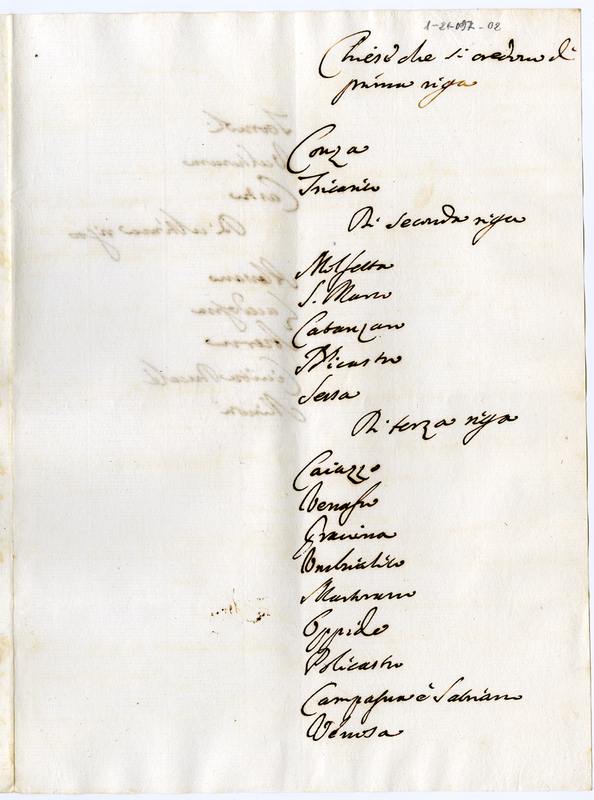 1-21-097-02
Chiese che si credono di
prima riga
Conza
Tricarico
Di seconda riga
Molfetta
S. Marco
Catanzaro
Nicastro
Sessa
Di terza riga
Caiazzo
Venafro
Gravina
Umbriatico
Martorano
Oppido
Policastro
Campagna è Satriano
Venosa